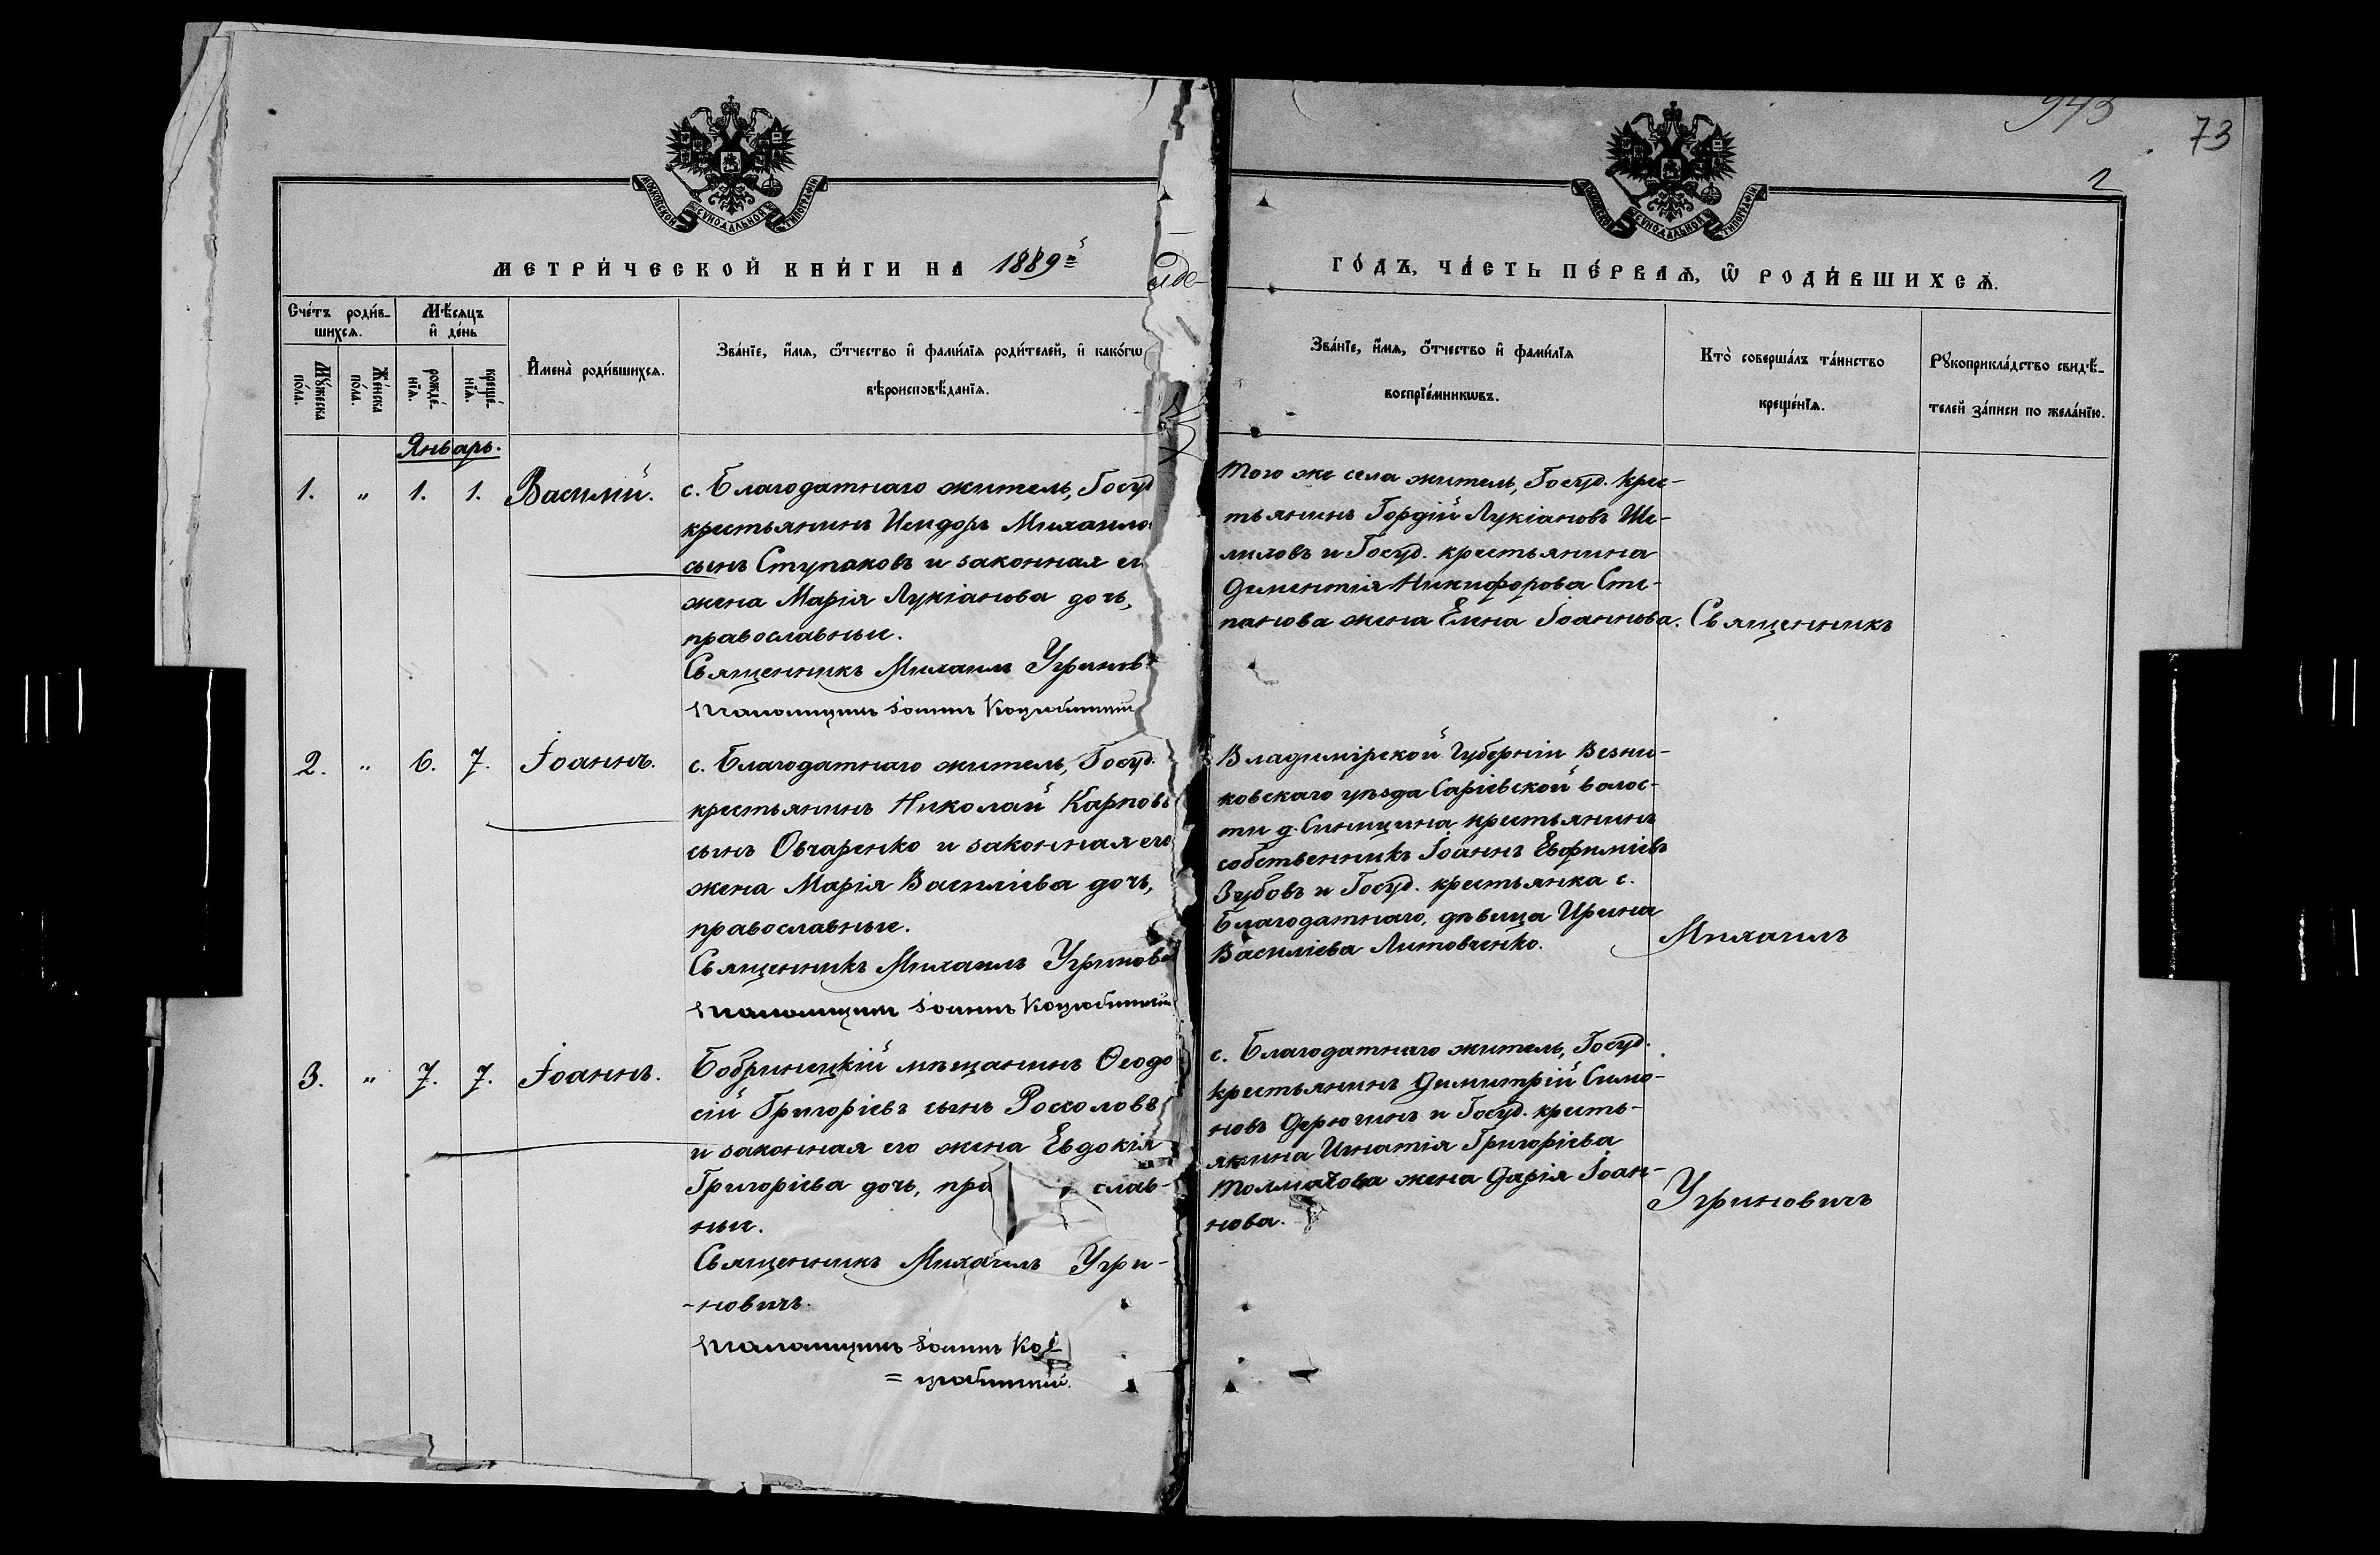 943
73
2
МОСКОВСКОЙ СѴНОДАЛЬНОЙ ТИПОГРАФІИ
МОСКОВСКОЙ СѴНОДАЛЬНОЙ ТИПОГРАФІИ
МЕТРИ́ЧЕСКОЙ КНИ́ГИ НА 1889й
ГО́ДЪ, ЧА́СТЬ ПЕ́РВАѦ, Ѡ РОДИ́ВШИХСѦ.
Сче́тъ роди́в-
шихсѧ.
Му́жеска
по́ла.
Же́нска
по́ла.
Мѣ́сѧцъ
и҆ де́нь
рожде́-
нїѧ.
креще́-
нїѧ.
И҆мена̀ роди́вшихсѧ.
Зва́нїе, и҆́мѧ, ѻ҆́тчество и҆ фами́лїѧ роди́телей, и҆ како́гѡ
вѣроисповѣ́данїѧ.
Зва́нїе, и҆́мѧ, ѻ҆́тчество и҆ фами́лїѧ
воспрїе́мникѡвъ.
Кто̀ соверша́лъ та́инство
креще́нїѧ.
Рꙋкоприкла́дство свидѣ́-
телей за́писи по жела́нїю.
Январь.
1. " 1. 1. Василій.
с. Благодатнаго житель, Госуд
крестьянинъ Исидоръ Михаило
сынъ Ступаковъ и законная ег
жена Марія Лукіанова дочь,
православные.
Священникъ Михаилъ Угринов
Паломщикъ Іоаннъ Коцюбинскій
Того же села житель, Госуд. крес-
тьянинъ Гордій Лукіановъ Ше-
лиховъ и Госуд. крестьянина
Дементія Никифорова Сте-
панова жена Елена Іоаннова.
Священникъ
2. " 6. 7. Іоаннъ.
с. Благодатнаго житель, Госуд.
крестьянинъ Николай Карповъ
сынъ Овчаренко и законная его
жена Марія Василіева дочь,
православные.
Священникъ Михаилъ Угринов
Паломщикъ Іоаннъ Коцюбинскій
Владимірской Губерніи Везни-
ковскаго уѣзда Саріевской волос-
ти д. Синицина крестьянинъ
собственникъ Іоаннъ Евфиміевъ
Зубовъ и Госуд. крестьянка с.
Благодатнаго, дѣвица Ирина
Василіева Литовченко.
Михаилъ
3. " 7. 7. Іоаннъ.
Бобринецкій мѣщанинъ Ѳеодо
сій Григоріевъ сынъ Росколовъ
и законная его жена Евдокія
Григоріева дочь, пра слав-
ные.
Священникъ Михаилъ Угри-
-новичъ.
Паломщикъ Іоаннъ Ко
= цюбинскій.
с. Благодатнаго житель, Госуд.
крестьянинъ Димитрій Симо-
новъ Дерюгинъ и Госуд. кресть-
янина Игнатія Григоріева
Толмачова жена Дарія Іоан-
нова.
Угриновичъ